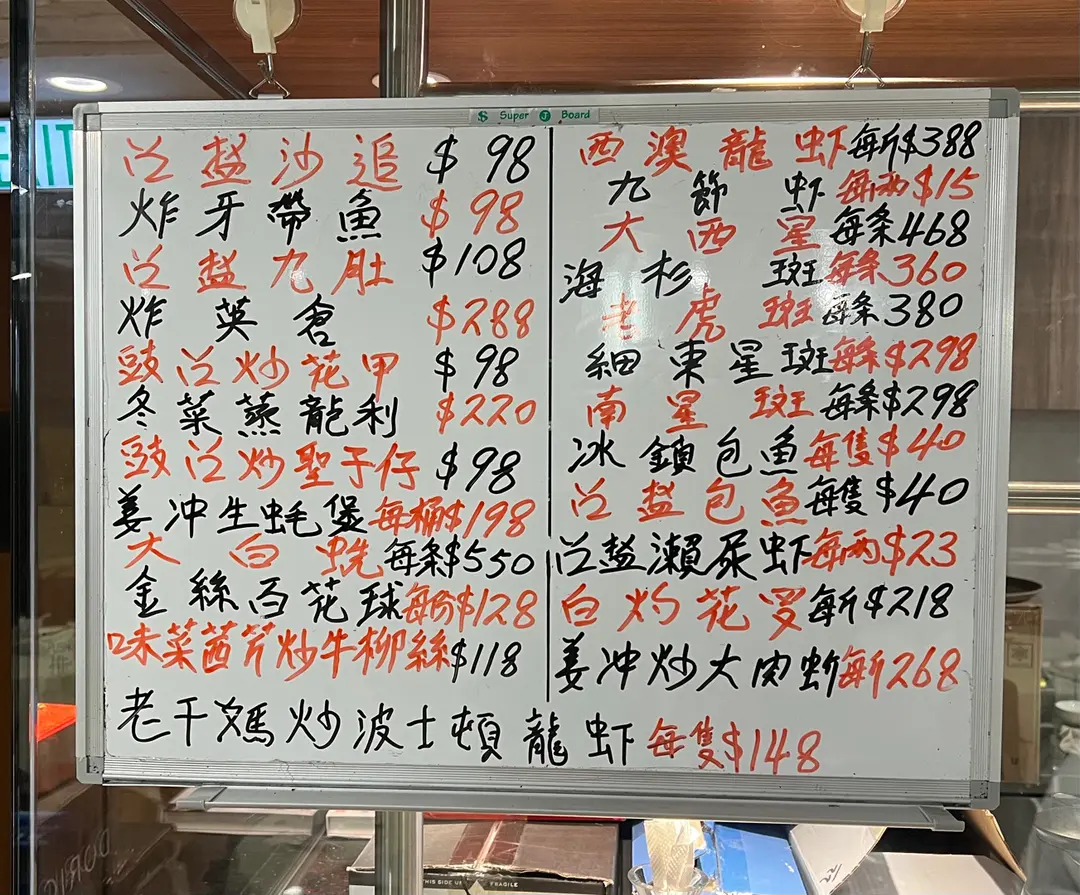 S Super J Board
㕣盐沙追 $98
炸牙帶魚 $98
㕣盐九肚 $108
炸英倉 $288
豉㕣炒花甲 $98
冬菜蒸龍利 $220
豉㕣炒聖子仔 $98
姜冲生蚝煲每桶$198
大白𧐢每条$550
金絲百花球每份$128
味菜茜芹炒牛柳絲$118
西澳龍虾每斤$388
九節虾每両$15
大西星每条468
海杉斑每条360
老虎斑每条380
細東星斑每条$298
南星斑每条$298
冰鎖包魚每隻$40
㕣盐包魚每隻$40
㕣盐瀨尿虾每両$23
白灼花旻每斤$218
姜冲炒大肉蚧每斤268
老干媽炒波士頓龍虾每隻$148
THIS SIDE UP
FRAGILE